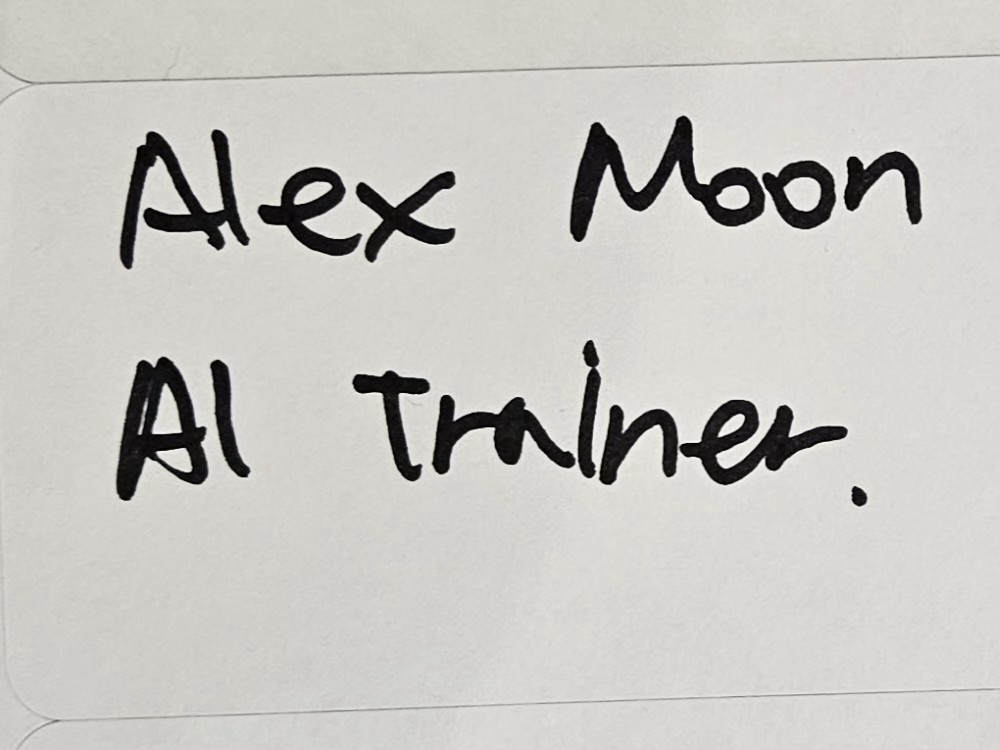 Alex Moon
AI Trainer.